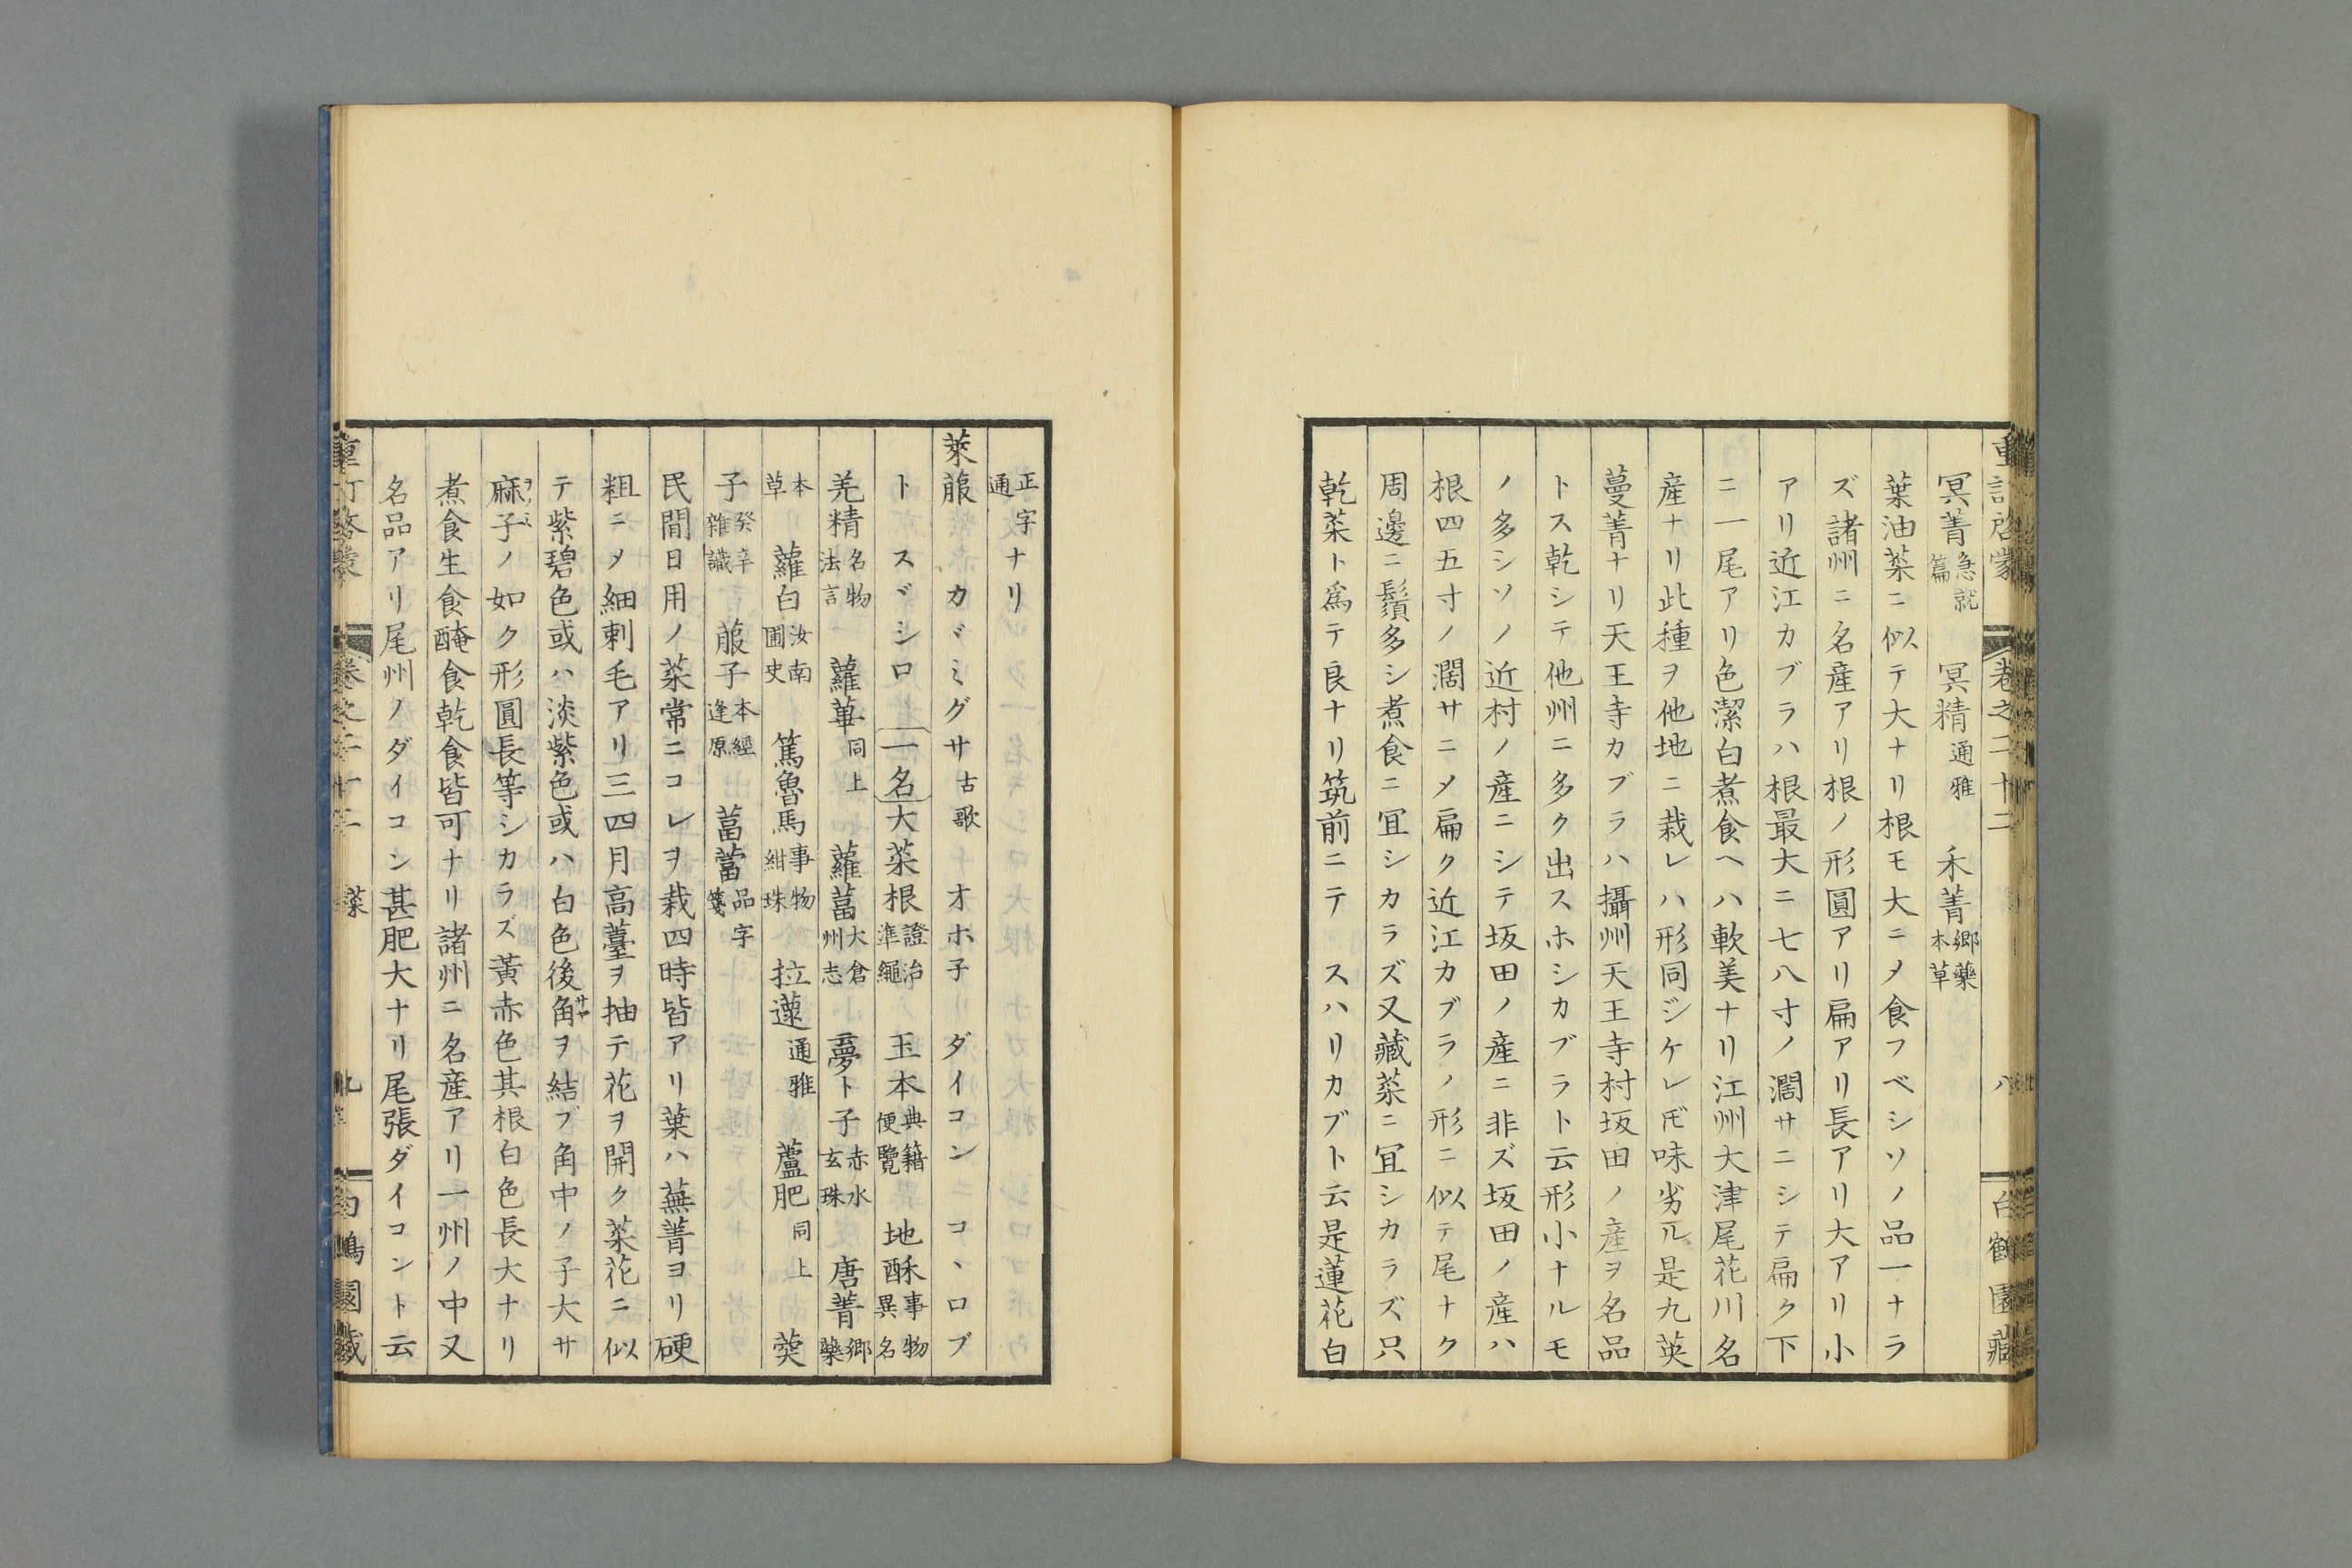 重訂啓蒙 卷之二十二 八 白鶴園藏
冥菁急就篇 冥精通雅 禾菁郷藥本草
葉油菜ニ似テ大ナリ根モ大ニメ食フベシソノ品一ナラ
ズ諸州ニ名産アリ根ノ形圓アリ扁アリ長アリ大アリ小
アリ近江カブラハ根最大ニ七八寸ノ濶サニシテ扁ク下
ニ一尾アリ色潔白煮食ヘハ軟美ナリ江州大津尾花川名
産ナリ此種ヲ他地ニ栽レハ形同ジケレ𪜈味劣レリ是九英
蔓菁ナリ天王寺カブラハ攝州天王寺村坂田ノ産ヲ名品
トス乾シテ他州ニ多ク出スホシカブラト云形小ナルモ
ノ多シソノ近村ノ産ニシテ坂田ノ産ニ非ズ坂田ノ産ハ
根四五寸ノ濶サニメ扁ク近江カブラノ形ニ似テ尾ナク
周邊ニ鬚多シ煮食ニ宜シカラズ又藏菜ニ宜シカラズ只
乾菜ト爲テ良ナリ筑前ニテ スハリカブト云是蓮花白
正字通ナリ
萊菔 カヾミグサ古歌 オホ子 ダイコン ニコヽロブ
ト スヾシロ 一名大菜根證治準繩 玉本典籍便覽 地酥事物異名
羌精名物法言 蘿華同上 蘿菖大倉州志 夢卜子赤水玄珠 唐菁郷藥
本草 蘿白汝南圃史 篤魯馬事物紺珠 拉蓫通雅 蘆肥同上 葖
子癸辛雜識 菔子本經逢原 菖蕾品字箋
民間日用ノ菜常ニコレヲ栽四時皆アリ葉ハ蕪菁ヨリ硬
粗ニメ細刺毛アリ三四月高薹ヲ抽テ花ヲ開ク菜花ニ似
テ紫碧色或ハ淡紫色或ハ白色後角サヤヲ結ブ角中ノ子大サ
麻子ノ如ク形圓長等シカラズ黃赤色其根白色長大ナリ
煮食生食醃食乾食皆可ナリ諸州ニ名産アリ一州ノ中又
名品アリ尾州ノダイコン甚肥大ナリ尾張ダイコント云
重訂啓蒙 卷之二十二 菜 九 白鶴園藏